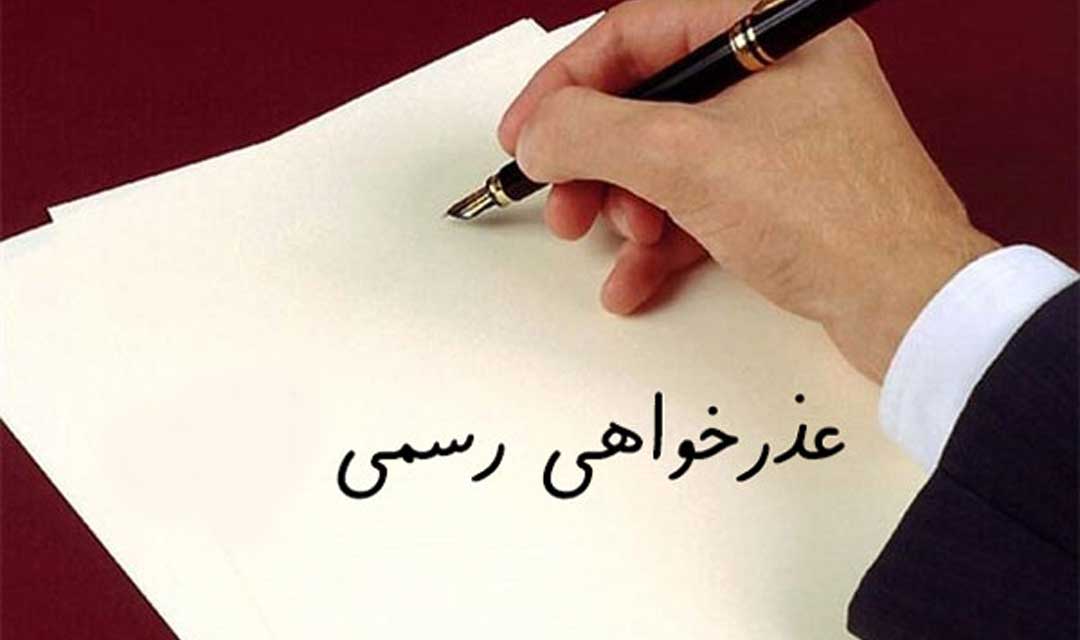 عذرخواهی رسمی